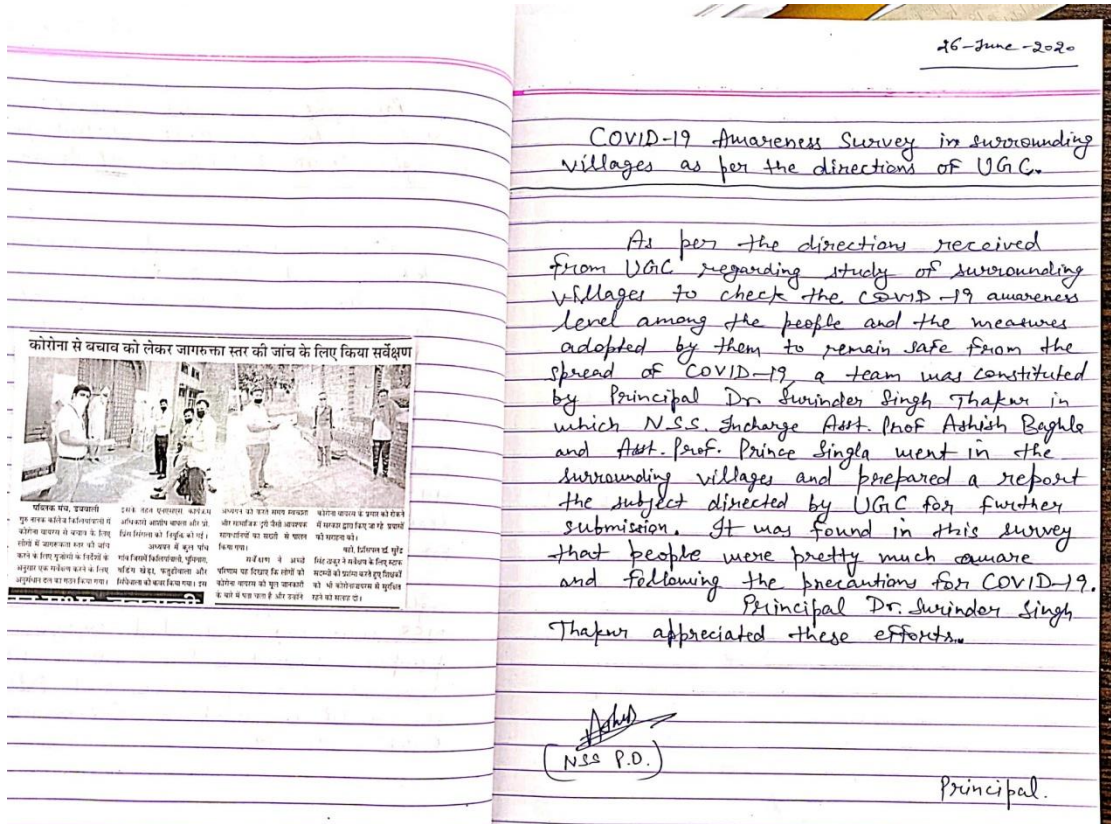 कोरोना से बचाव को लेकर जागरुक्ता स्तर की जांच के लिए किया सर्वेक्षण
पब्लिक मंच, डबवाली
गुरु नानक कॉलेज किलियांवाली में
कोरोना वायरस से बचाव के लिए
लोगों में जागरूकता स्तर को जांच
करने के लिए यूजीसी के निर्देशों के
अनुसार एक सर्वेक्षण करने के लिए
अनुसंधान दल का गठन किया गया।
इसके तहत एनएसएस कार्यक्रम
अधिकारी आशीष बाघला और प्रो.
प्रिंस सिंगला को नियुक्ति की गई।
अध्ययन में कुल पांच
गांव जिनमें किलियांवाली,
वडिंग खेड़ा, फतूहीवाला और
सिंघेवाला को कवर किया गया। इस
अध्ययन को करते समय स्वच्छता
और सामाजिक दूरी जैसे आवश्यक
सावधानियों का सख्ती से पालन
किया गया।
सर्वेक्षण ने अच्छे
परिणाम यह दिखाए कि लोगों को
कोरोना वायरस की मूल जानकारी
के बारे में पता चला है और उन्होंने
कोरोना वायरस के प्रसार को रोकने
में सरकार द्वारा किए जा रहे प्रयासों
की सराहना की।
प्रिंसिपल डॉ. सुरेंद्र
सिंह ठाकुर ने सर्वेक्षण के लिए स्टाफ
सदस्यों को प्रशंसा करते हुए शिक्षकों
को भी कोरोनावायरस से सुरक्षित
रहने की सलाह दी।
26-June-2020
COVID-19 Awareness Survey in surrounding
villages as per the directions of UGC.
As per the directions received
from UGC regarding study of surrounding
villages to check the COVID-19 awareness
level among the people and the measures
adopted by them to remain safe from the
spread of COVID-19, a team was constituted
by Principal Dr Surinder Singh Thakur in
which N.S.S. Incharge Asst. Prof Ashish Baghla
and Asst. Prof. Prince Singla went in the
surrounding villages and prepared a report
the subject directed by UGC for further
submission. It was found in this survey
that people were pretty much aware
and following the precautions for COVID-19.
Principal Dr. Surinder Singh
Thakur appreciated these efforts.
(NSS P.O.)
Principal.